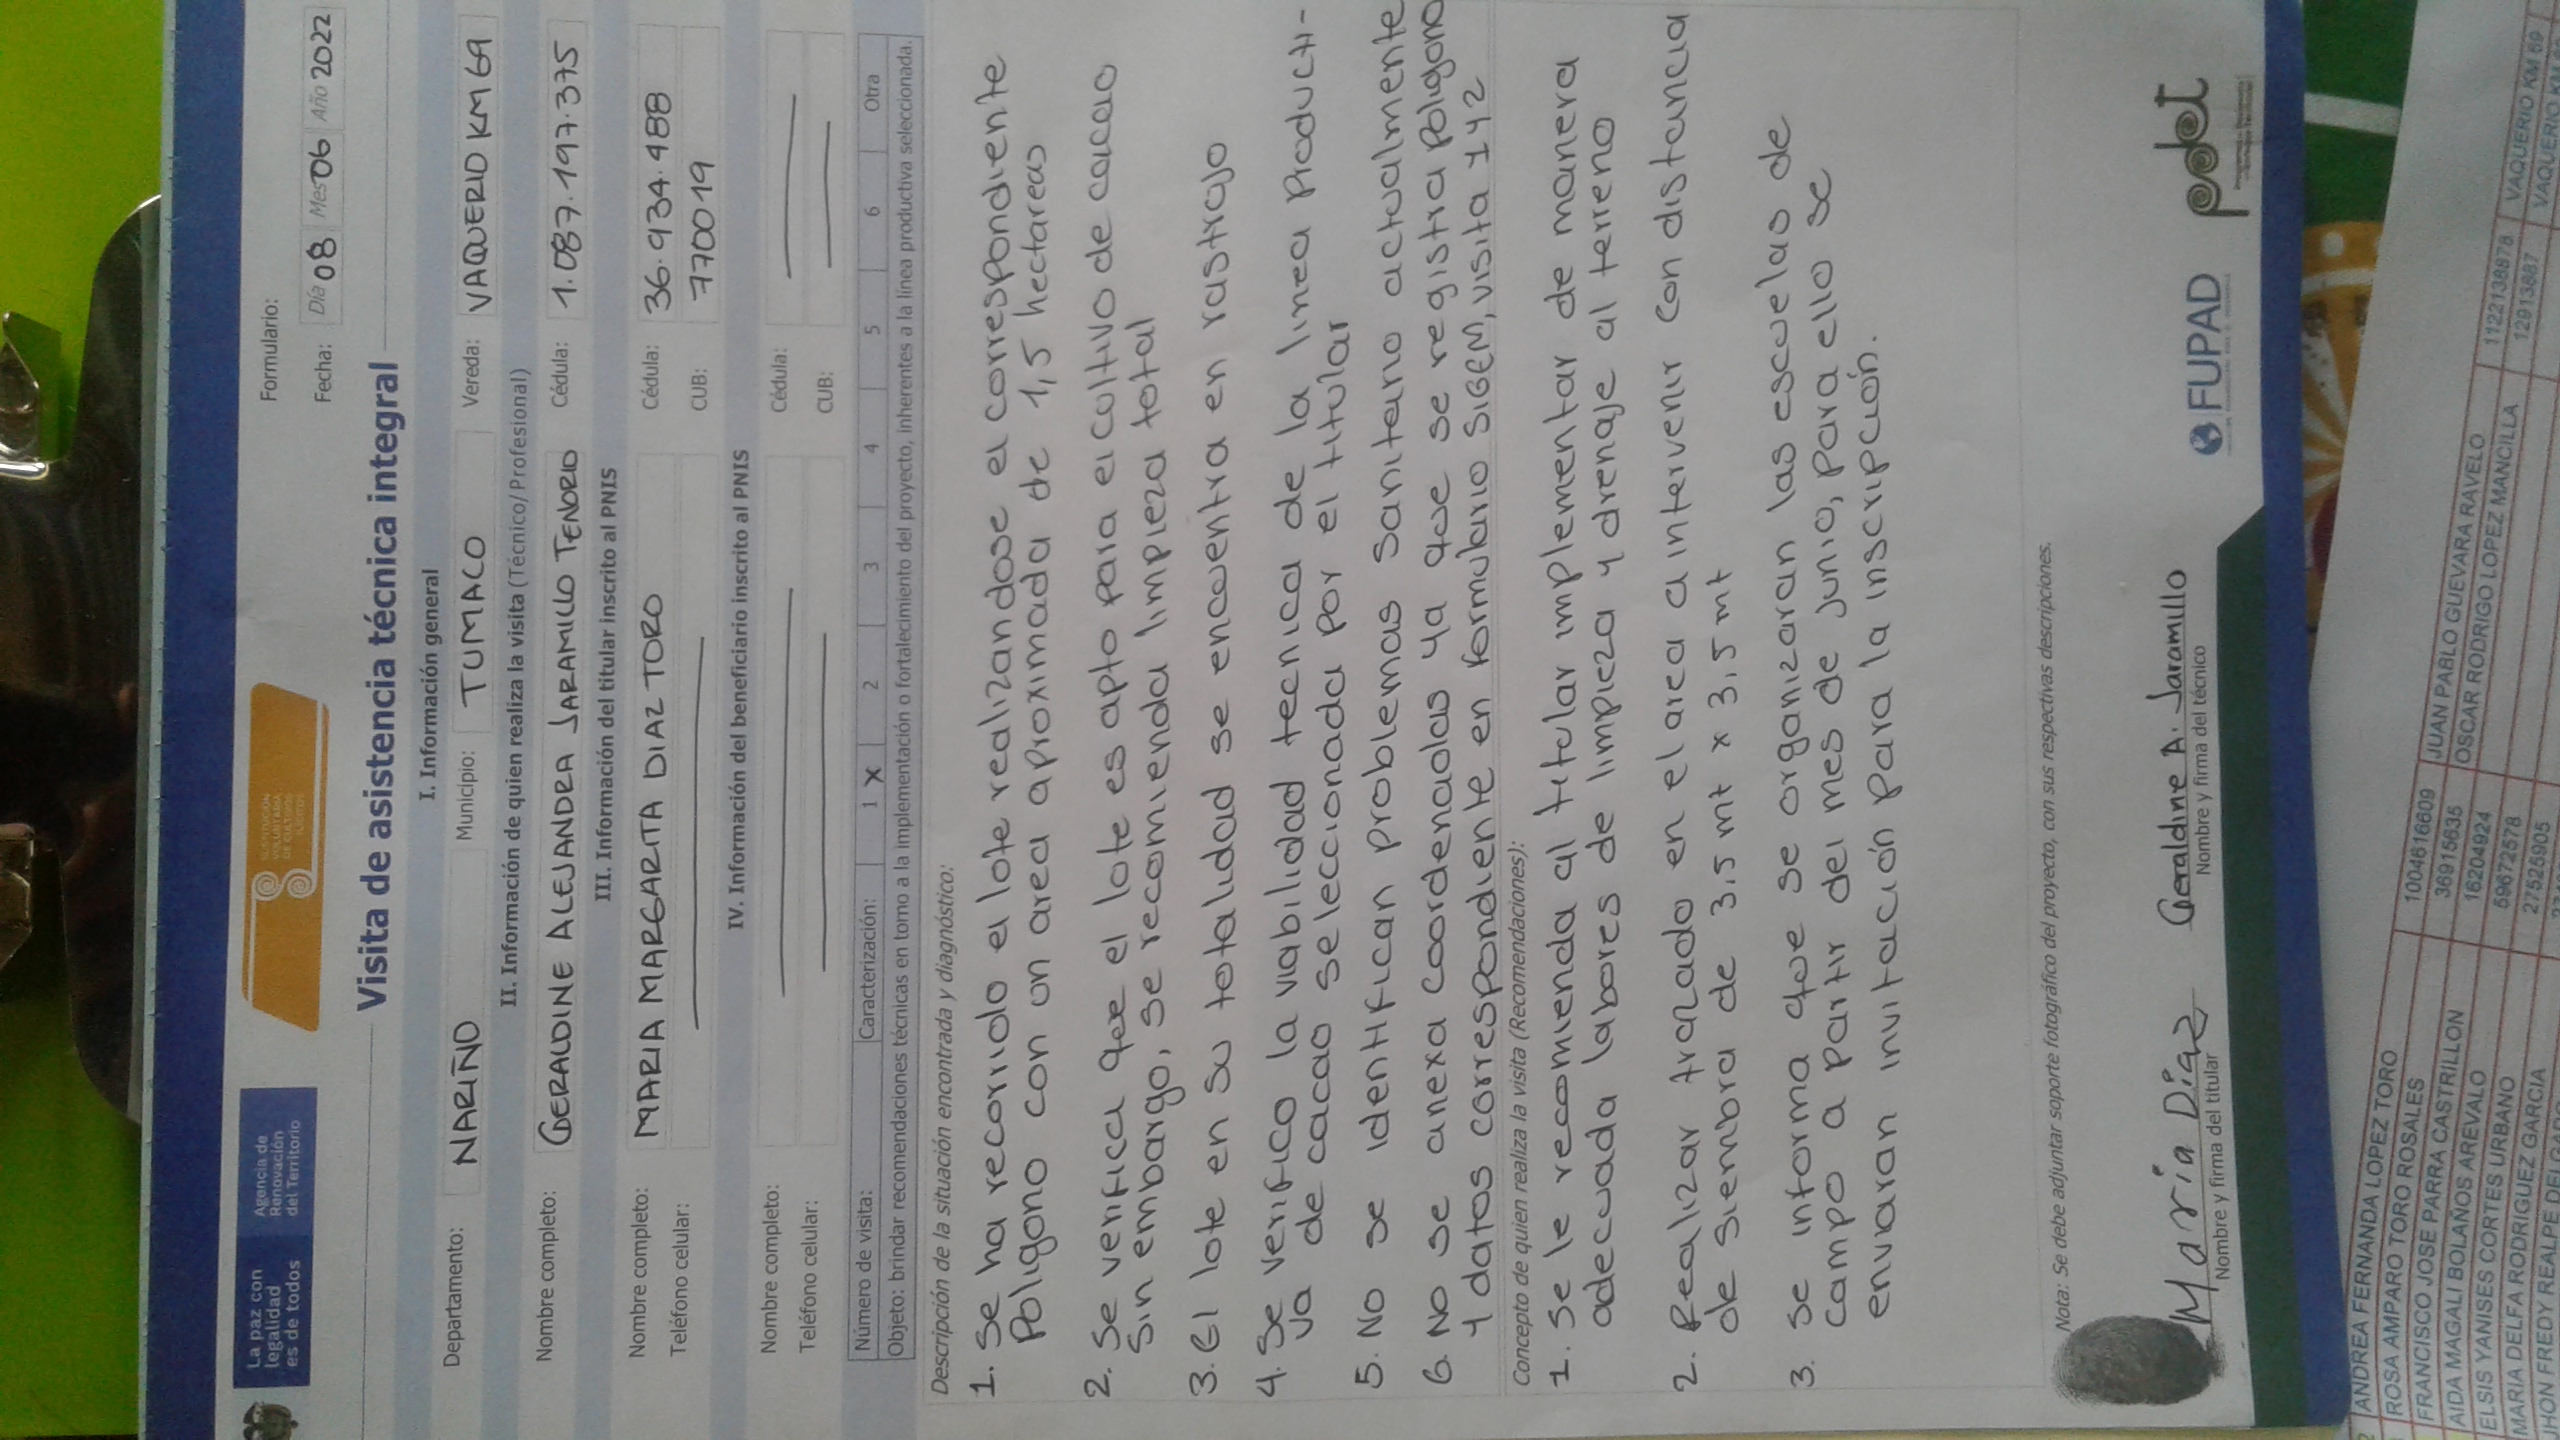 La paz con
legalidad
es de todos
Agencia de
Renovación
del Territorio
SUSTITUCIÓN
VOLUNTARIA
DE CULTIVOS
ILÍCITOS
Formulario:
Fecha: Día 08 Mes 06 Año 2022
Visita de asistencia técnica integral
I. Información general
Departamento: NARIÑO Municipio: TUMACO Vereda: VAQUERIO KM 69
II. Información de quien realiza la visita (Técnico/Profesional)
Nombre completo: GERALDINE ALEJANDRA JARAMILLO TENORIO Cédula: 1.087.197.375
III. Información del titular inscrito al PNIS
Nombre completo: MARIA MARGARITA DIAZ TORO Cédula: 36.934.488
Teléfono celular: CUB: 770019
IV. Información del beneficiario inscrito al PNIS
Nombre completo: Cédula:
Teléfono celular: CUB:
Número de visita: Caracterización: 1 X 2 3 4 5 6 Otra
Objeto: brindar recomendaciones técnicas en torno a la implementación o fortalecimiento del proyecto, inherentes a la línea productiva seleccionada.
Descripción de la situación encontrada y diagnóstico:
1. Se ha recorrido el lote realizandose el correspondiente
Poligono con un area aproximada de 1,5 hectareas
2. Se verifica que el lote es apto para el cultivo de cacao
sin embargo, se recomienda limpieza total
3. El lote en su totalidad se encuentra en rastrojo
4. Se verifico la viabilidad tecnica de la linea producti-
va de cacao seleccionada por el titular
5. No se identifican problemas sanitario actualmente
6. No se anexa coordenadas ya que se registra poligono
y datos correspondiente en formulario SIGEM, visita 142
Concepto de quien realiza la visita (Recomendaciones):
1. Se le recomienda al titular implementar de manera
adecuada labores de limpieza y drenaje al terreno
2. Realizar trazado en el area a intervenir con distancia
de siembra de 3,5 mt x 3,5 mt
3. Se informa que se organizaran las escuelas de
campo a partir del mes de junio, para ello se
envaran invitación para la inscripción.
Nota: Se debe adjuntar soporte fotográfico del proyecto, con sus respectivas descripciones.
Maria Diaz
Nombre y firma del titular
Geraldine A. Jaramillo
Nombre y firma del técnico
FUPAD
pdet
ANDREA FERNANDA LOPEZ TORO 1004616609 JUAN PABLO GUEVARA RAVELO 1122138878 VAQUERIO KM 69
ROSA AMPARO TORO ROSALES 36915635 OSCAR RODRIGO LOPEZ MANCILLA 12913887 VAQUERIO KM
FRANCISCO JOSE PARRA CASTRILLON 16204924
AIDA MAGALI BOLAÑOS AREVALO 59672578
ELSIS YANISES CORTES URBANO 27525905
MARIA DELFA RODRIGUEZ GARCIA
JHON FREDY REALPE DELGADO